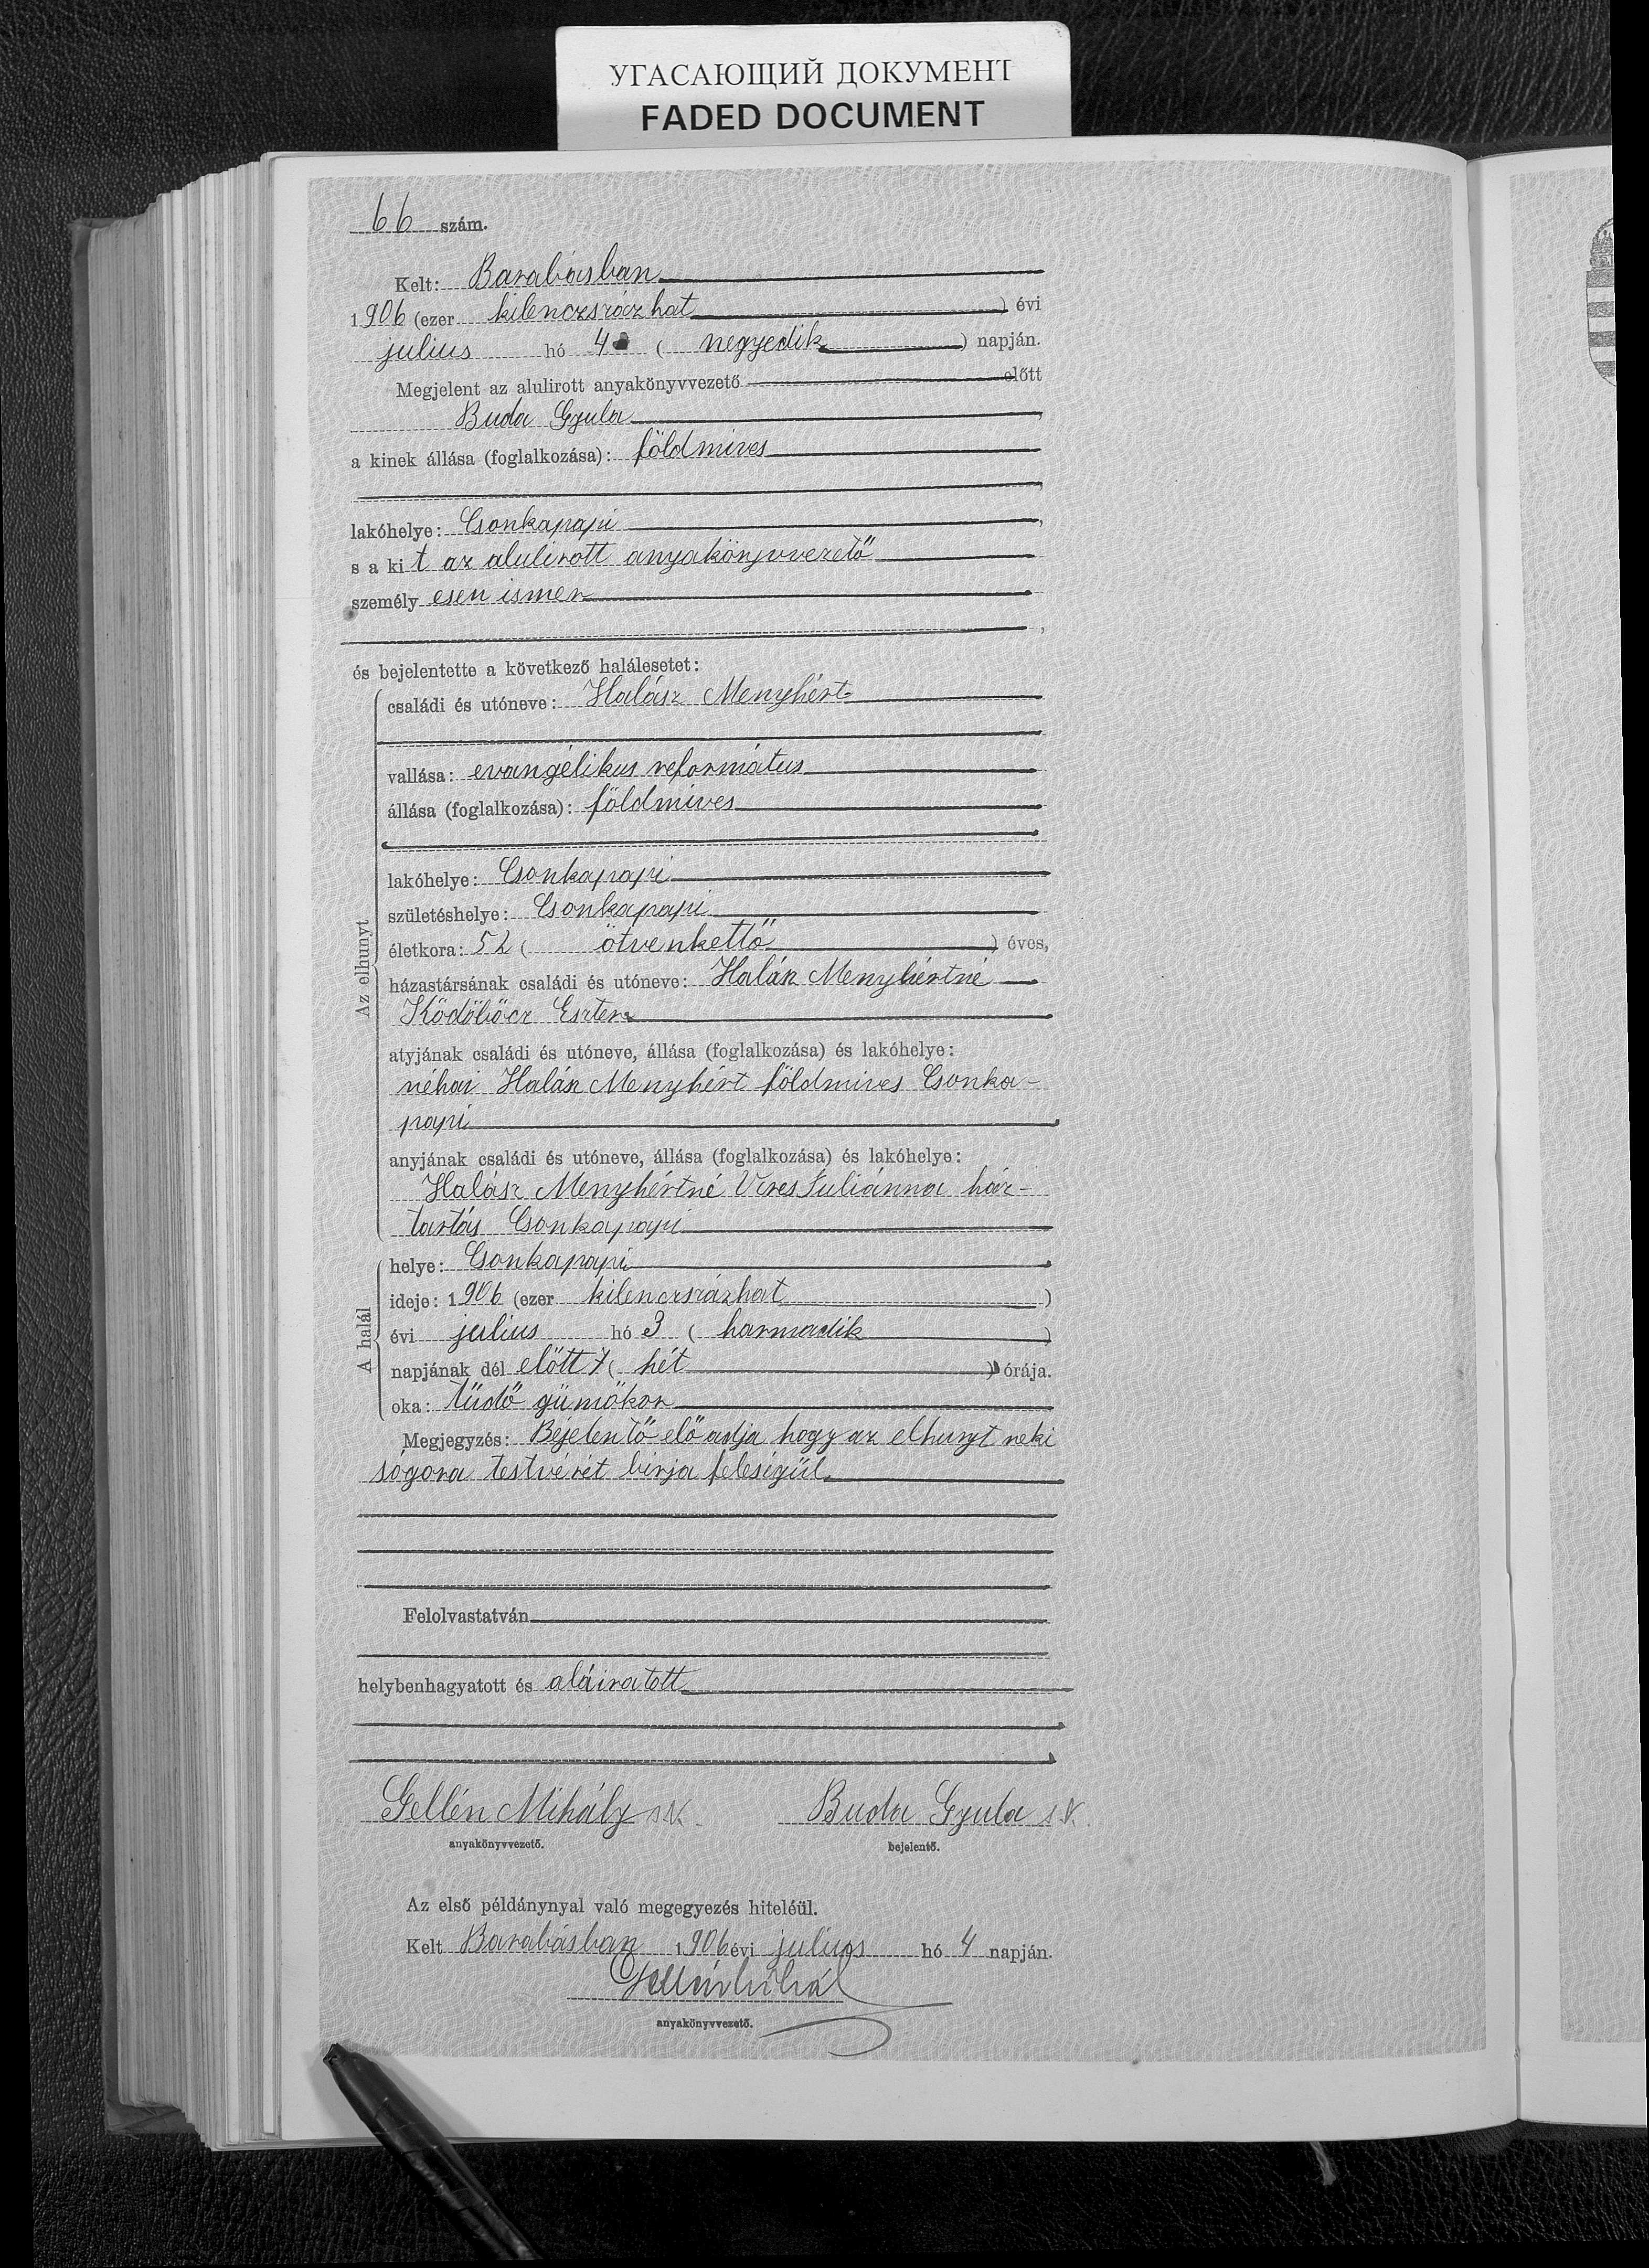 УГАСАЮЩИЙ ДОКУМЕНТ
FADED DOCUMENT
66 szám.
Kelt: Barabásban
1906 (ezer kilenczszázhat ) évi
julius hó 4 ( negyedik ) napján.
Megjelent az alulirott anyakönyvvezető előtt
Buda Gyula
a kinek állása (foglalkozása): földmives
lakóhelye: Csonkapapi
s a kit az alulirott anyakönyvvezető
személyesen ismer
és bejelentette a következő halálesetet:
Az elhunyt
családi és utóneve: Halász Menyhért
vallása: evangélikus református
állása (foglalkozása): földmives
lakóhelye: Csonkapapi
születéshelye: Csonkapapi
életkora: 52 ( ötvenkettő ) éves,
házastársának családi és utóneve: Halász Menyhértné
Eszter
atyjának családi és utóneve, állása (foglalkozása) és lakóhelye:
néhai Halász Menyhért földmives Csonka-
papi
anyjának családi és utóneve, állása (foglalkozása) és lakóhelye:
Halász Menyhértné Veres Juliánna ház-
tartás Csonkapapi
A halál
helye: Csonkapapi
ideje: 1906 (ezer kilenczszázhat )
évi julius hó 3 ( harmadik )
napjának dél előtt 7 ( hét ) órája.
oka: tüdő gümőkor
Megjegyzés: Bejelentő előadja hogy az elhunyt neki
sógora testvérét birja feleségül
Felolvastatván
helybenhagyatott és aláiratott
Gellén Mihály s.k. Buda Gyula s.k.
anyakönyvvezető. bejelentő.
Az első példánynyal való megegyezés hiteléül.
Kelt Barabásban 1906 évi julius hó 4 napján.
Gellén Mihály
anyakönyvvezető.